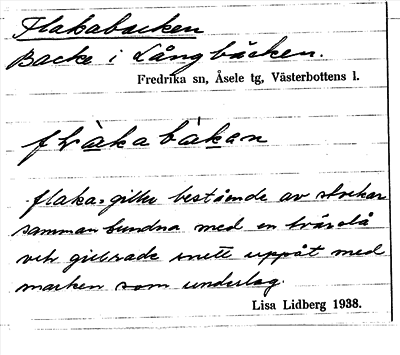 Flakabacken
Backe i Långbäcken.
Fredrika sn, Åsele tg, Västerbottens l.
flaka = giller bestående av stockar
sammanbundna med en tvärslå
och gillrade snett uppåt med
marken som underlag.
Lisa Lidberg 1938.